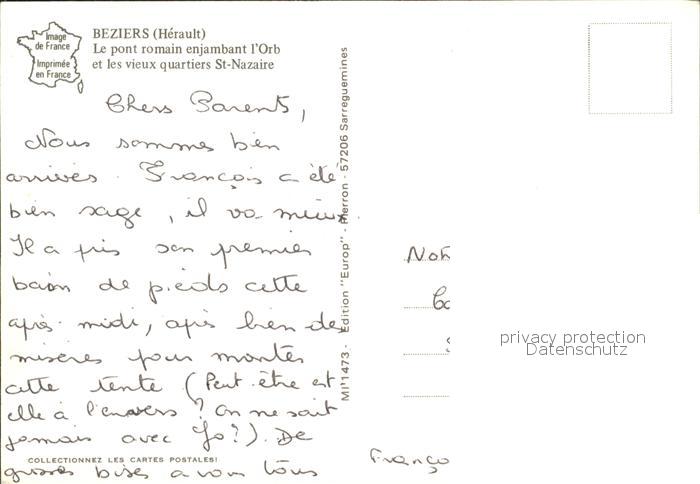 Image
de France
Imprimée
en France
BEZIERS (Hérault)
Le pont romain enjambant l'Orb
et les vieux quartiers St-Nazaire
Chers Parents,
Nous sommes bien
arrivés. François a été
bien sage, il va mieux.
Il a pris son premier
bain de pieds cette
après-midi, après bien des
misères pour monter
cette tente (Peut-être est
elle à l'envers ? On ne sait
jamais avec Jo ?). De
grosses bises a vous tous
Franço
COLLECTIONNEZ LES CARTES POSTALES!
MI'1473 - Edition "Europ" - Pierron - 57206 Sarreguemines
privacy protection
Datenschutz